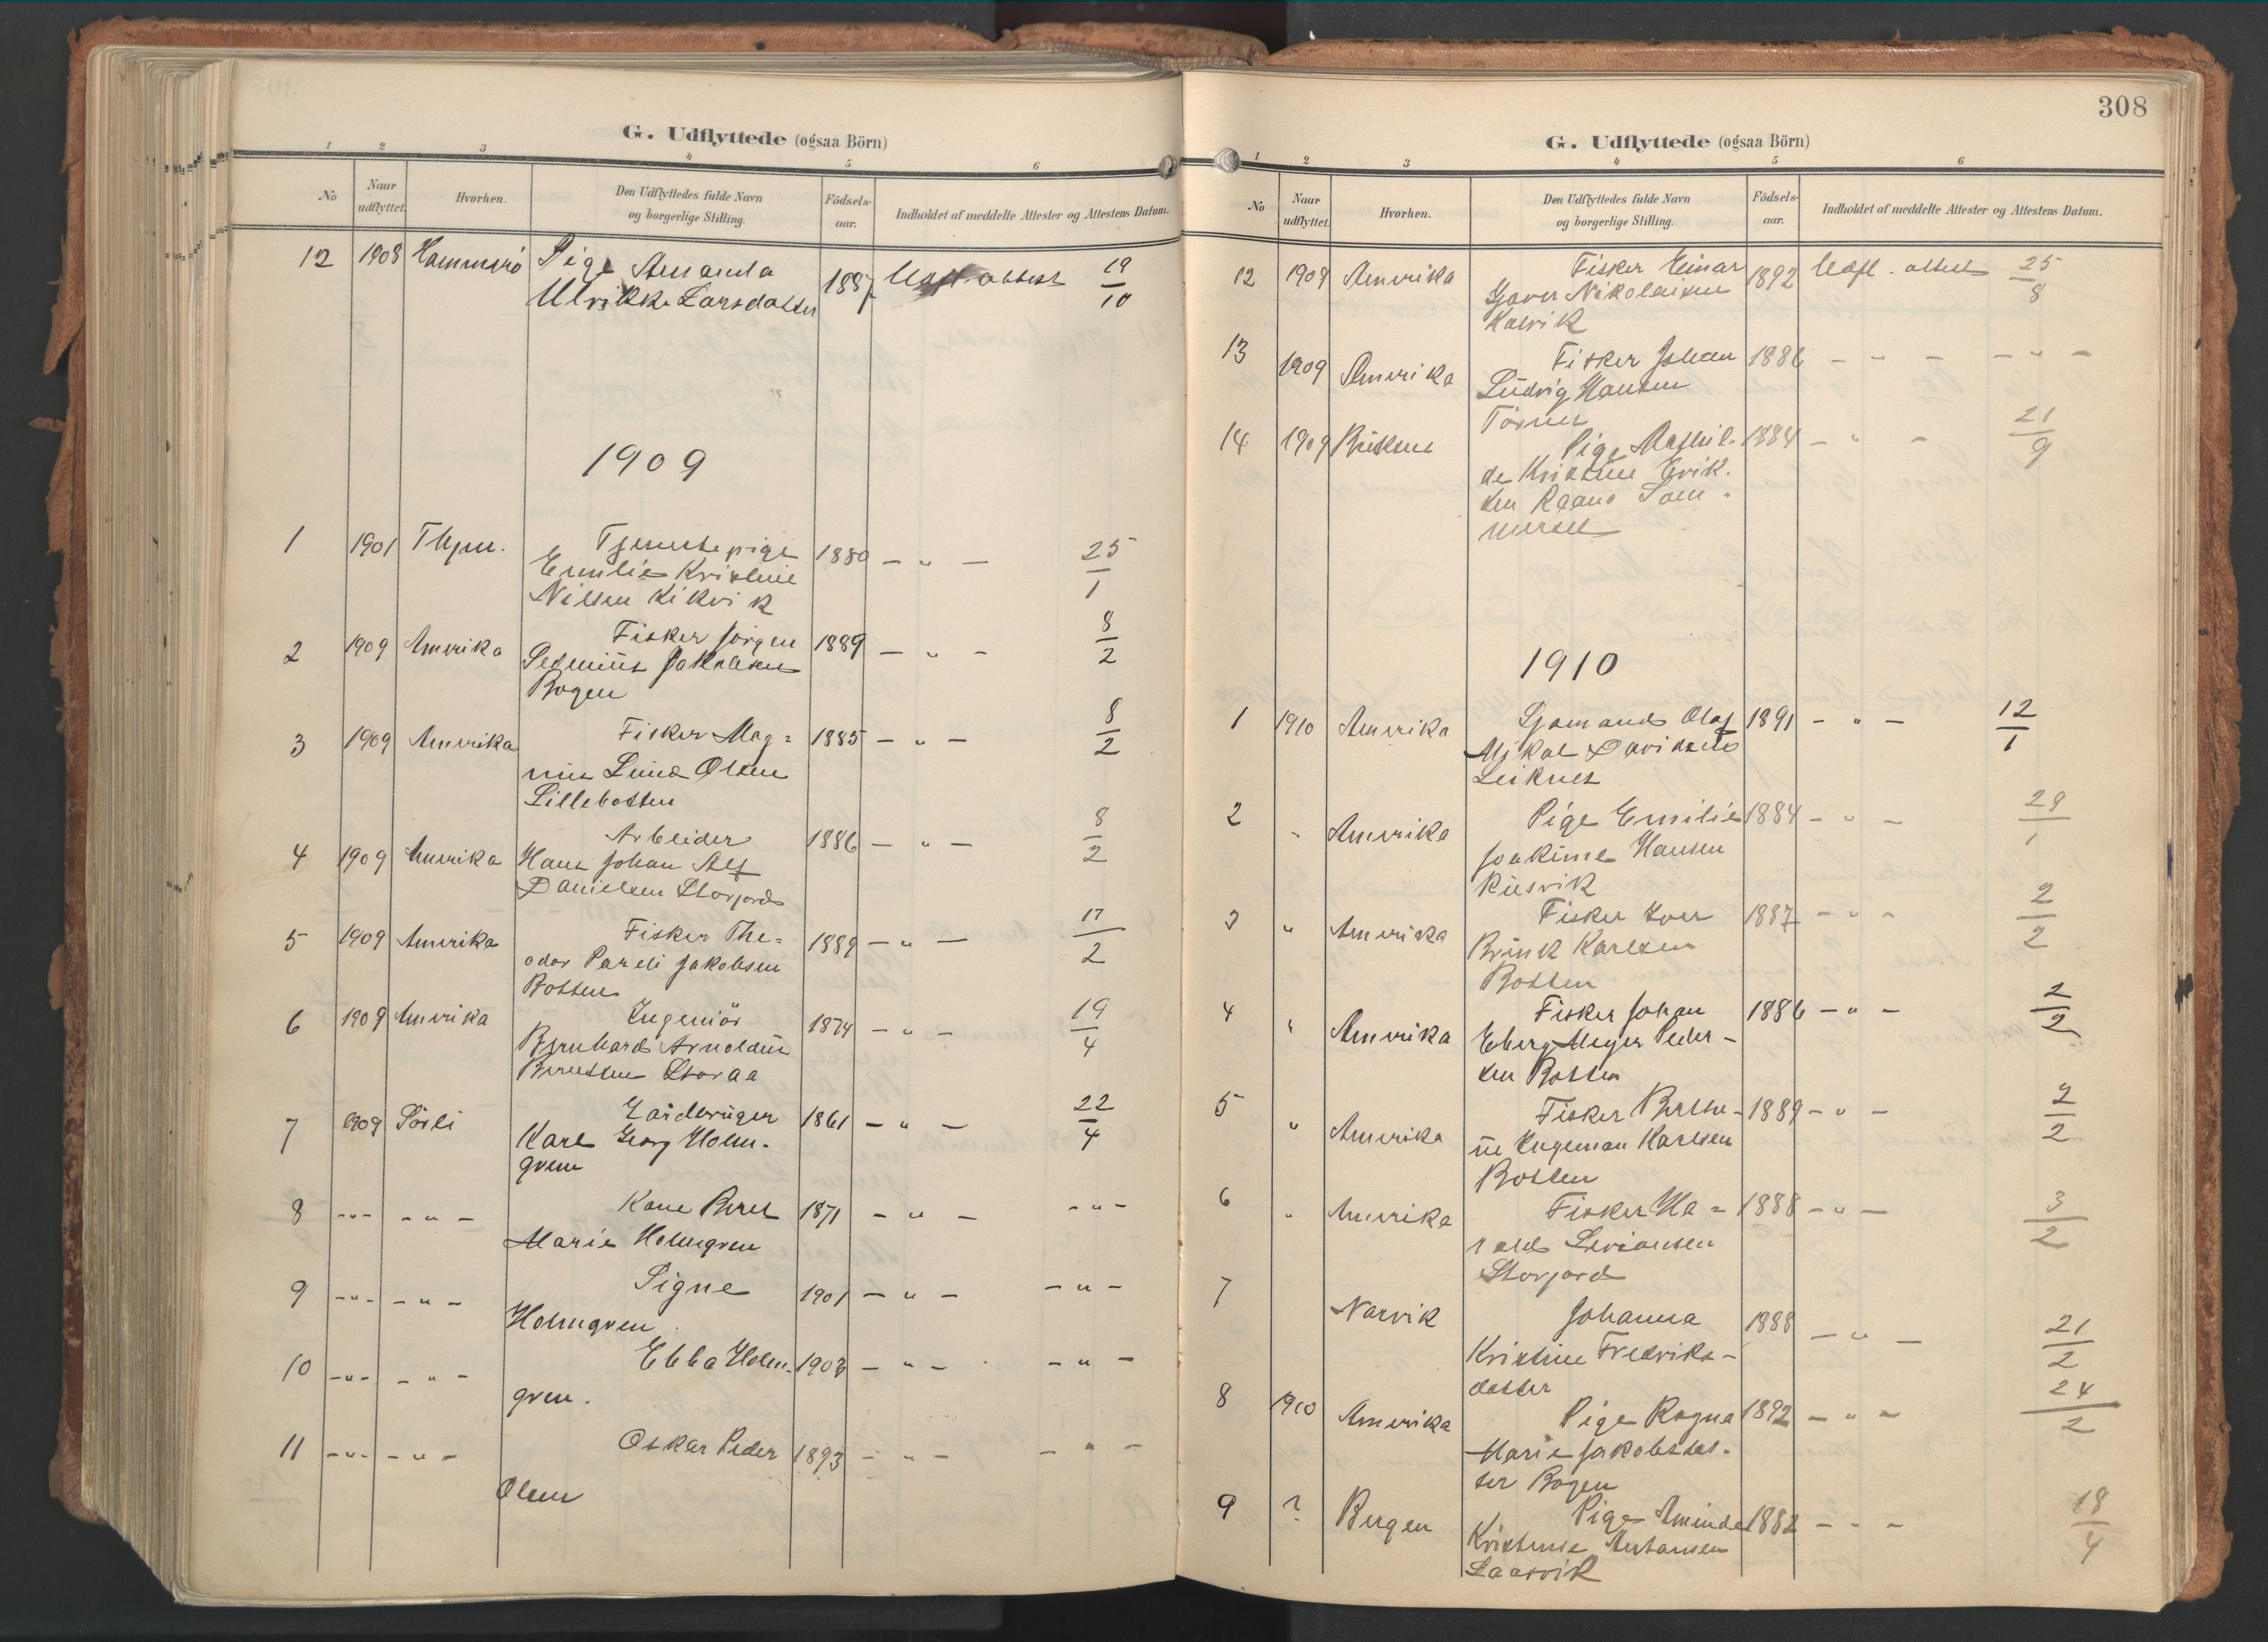 G. Udflyttede (ogsaa Börn)
1 2 3 4 5 6
No
Naar udflyttet.
Hvorhen.
Den Udflyttedes fulde Navn og borgerlige Stilling.
Födsels-aar.
Indholdet af meddelte Attester og Attestens Datum.
12 1908 Hammerö Pige Amanda 1887 Udfl. attest 19/10
Ulrikke Larsdatter
1909
1 1901 Tjenestepige 1880 — " — 25/1
Emilie Kristine
Nielsen
2 1909 Amerika Fisker Jörgen 1889 — " — 8/2
Jakobsen
Bogen
3 1909 Amerika Fisker Mag= 1885 — " — 8/2
nus Lund Olsen
Lillebotten
4 1909 Amerika Arbeider 1886 — " — 8/2
Hans Johan Alf
Danielsen Storjord
5 1909 Amerika Fisker The= 1889 — " — 17/2
odor Pareli Jakobsen
Botten
6 1909 Amerika Ingeniör 1874 — " — 19/4
Bernhard Arnoldus
Berntsen Storaa
7 1909 Sörli Gaardbruger 1861 — " — 22/4
Karl Georg Holm-
gren
8 -"- - " - Kone Beret 1871 — " — - " -
Marie Holmgren
9 -"- - " - Signe 1901 — " — - " -
Holmgren
10 -"- - " - Ebba Holm- 1903 — " — - " -
gren.
11 -"- - " - Oskar Peder 1893 — " — - " -
Olsen
308
G. Udflyttede (ogsaa Börn)
1 2 3 4 5 6
No
Naar udflyttet.
Hvorhen.
Den Udflyttedes fulde Navn og borgerlige Stilling.
Födsels-aar.
Indholdet af meddelte Attester og Attestens Datum.
12 1909 Amerika Fisker Einar 1892 Udfl. attest 25/8
Nikolaisen
Kalvik
13 1909 Amerika Fisker Johan 1886 - " - - " -
Ludvig Hansen
14 1909 Pige Mathil- 1884 - " - 21/9
de Kristine Erik-
sen
1910
1 1910 Amerika Olaf 1891 - " - 12/1
Mikal Davidsen
Leiknes
2 " Amerika Pige Emilie 1884 - " - 29/1
Joakime Hansen
3 " Amerika Fisker Iver 1887 - " - 2/2
Brink Karlsen
Botten
4 " Amerika Fisker Johan 1886 - " - 2/2
Eberg Meyer Peder-
sen Botten
5 " Amerika Fisker 1889 - " - 2/2
Ingeman Karlsen
Botten
6 " Amerika Fisker Ha= 1888 - " - 3/2
rald
Storjord
7 Narvik Johanna 1888 - " - 21/2
Kristine Fredriks-
datter
8 1910 Amerika Pige Ragna 1892 - " - 24/2
Marie Jakobsdat-
ter Bogen
9 ? Bergen Pige Aminda 1882 - " - 18/4
Kristense Antonsen